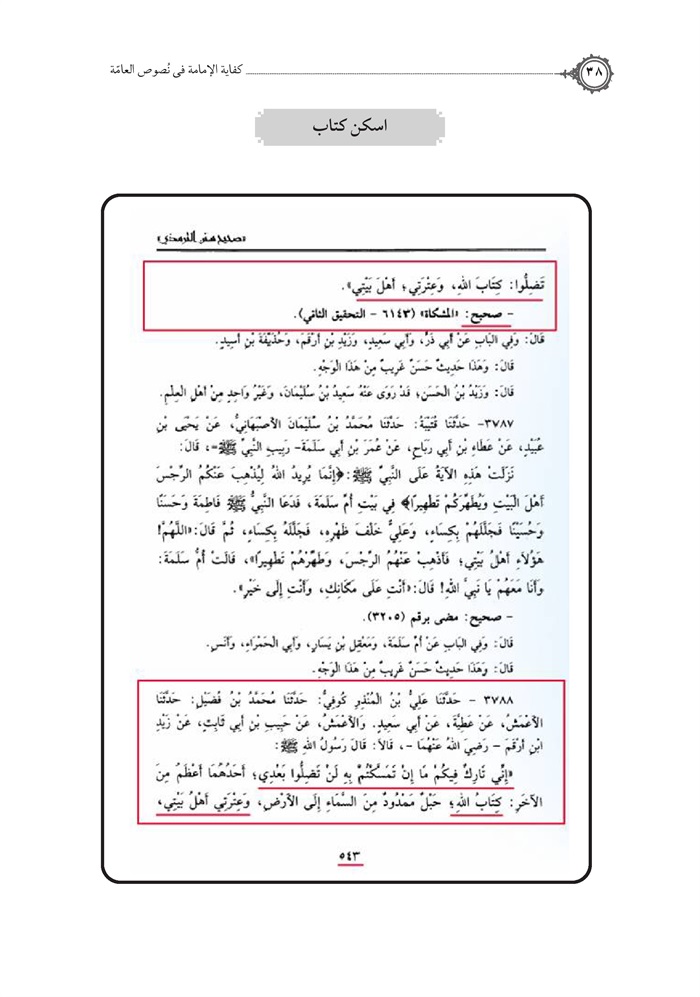 ٣٨
كفاية الإمامة فى نُصوص العامّة
اسكن كتاب
«صحيح سنن الترمذي»
تَضِلُّوا: كِتَابَ اللهِ، وَعِتْرَتِي؛ أَهْلَ بَيْتِي».
- صحيح: «المشكاة» (٦١٤٣ - التحقيق الثاني).
قَالَ: وَفِي الْبَابِ عَنْ أَبِي ذَرٍّ، وَأَبِي سَعِيدٍ، وَزَيْدِ بْنِ أَرْقَمَ، وَحُذَيْفَةَ بْنِ أَسِيدٍ.
قَالَ: وَهَذَا حَدِيثٌ حَسَنٌ غَرِيبٌ مِنْ هَذَا الْوَجْهِ.
قَالَ: وَزَيْدُ بْنُ الْحَسَنِ؛ قَدْ رَوَى عَنْهُ سَعِيدُ بْنُ سُلَيْمَانَ، وَغَيْرُ وَاحِدٍ مِنْ أَهْلِ الْعِلْمِ.
٣٧٨٧- حَدَّثَنَا قُتَيْبَةُ: حَدَّثَنَا مُحَمَّدُ بْنُ سُلَيْمَانَ الأَصْبَهَانِيُّ، عَنْ يَحْيَى بْنِ
عُبَيْدٍ، عَنْ عَطَاءِ بْنِ أَبِي رَبَاحٍ، عَنْ عُمَرَ بْنِ أَبِي سَلَمَةَ- رَبِيبِ النَّبِيِّ ﷺ-، قَالَ:
نَزَلَتْ هَذِهِ الآيَةُ عَلَى النَّبِيِّ ﷺ: ﴿إِنَّمَا يُرِيدُ اللهُ لِيُذْهِبَ عَنْكُمُ الرِّجْسَ
أَهْلَ الْبَيْتِ وَيُطَهِّرَكُمْ تَطْهِيرًا﴾ فِي بَيْتِ أُمِّ سَلَمَةَ، فَدَعَا النَّبِيُّ ﷺ فَاطِمَةَ وَحَسَنًا
وَحُسَيْنًا فَجَلَّلَهُمْ بِكِسَاءٍ، وَعَلِيٌّ خَلْفَ ظَهْرِهِ، فَجَلَّلَهُ بِكِسَاءٍ، ثُمَّ قَالَ: «اللَّهُمَّ!
هَؤُلَاءِ أَهْلُ بَيْتِي؛ فَأَذْهِبْ عَنْهُمُ الرِّجْسَ، وَطَهِّرْهُمْ تَطْهِيرًا»، قَالَتْ أُمُّ سَلَمَةَ:
وَأَنَا مَعَهُمْ يَا نَبِيَّ اللهِ! قَالَ: «أَنْتِ عَلَى مَكَانِكِ، وَأَنْتِ إِلَى خَيْرٍ».
- صحيح: مضى برقم (٣٢٠٥).
قَالَ: وَفِي الْبَابِ عَنْ أُمِّ سَلَمَةَ، وَمَعْقِلِ بْنِ يَسَارٍ، وَأَبِي الْحَمْرَاءِ، وَأَنَسٍ.
قَالَ: وَهَذَا حَدِيثٌ حَسَنٌ غَرِيبٌ مِنْ هَذَا الْوَجْهِ.
٣٧٨٨ - حَدَّثَنَا عَلِيُّ بْنُ الْمُنْذِرِ كُوفِيُّ: حَدَّثَنَا مُحَمَّدُ بْنُ فُضَيْلٍ: حَدَّثَنَا
الأَعْمَشُ، عَنْ عَطِيَّةَ، عَنْ أَبِي سَعِيدٍ. وَالأَعْمَشُ، عَنْ حَبِيبِ بْنِ أَبِي ثَابِتٍ، عَنْ زَيْدِ
ابْنِ أَرْقَمَ - رَضِيَ اللهُ عَنْهُمَا -، قَالَا: قَالَ رَسُولُ اللهِ ﷺ:
«إِنِّي تَارِكٌ فِيكُمْ مَا إِنْ تَمَسَّكْتُمْ بِهِ لَنْ تَضِلُّوا بَعْدِي؛ أَحَدُهُمَا أَعْظَمُ مِنَ
الآخَرِ: كِتَابُ اللهِ؛ حَبْلٌ مَمْدُودٌ مِنَ السَّمَاءِ إِلَى الأَرْضِ، وَعِتْرَتِي أَهْلُ بَيْتِي،
٥٤٣